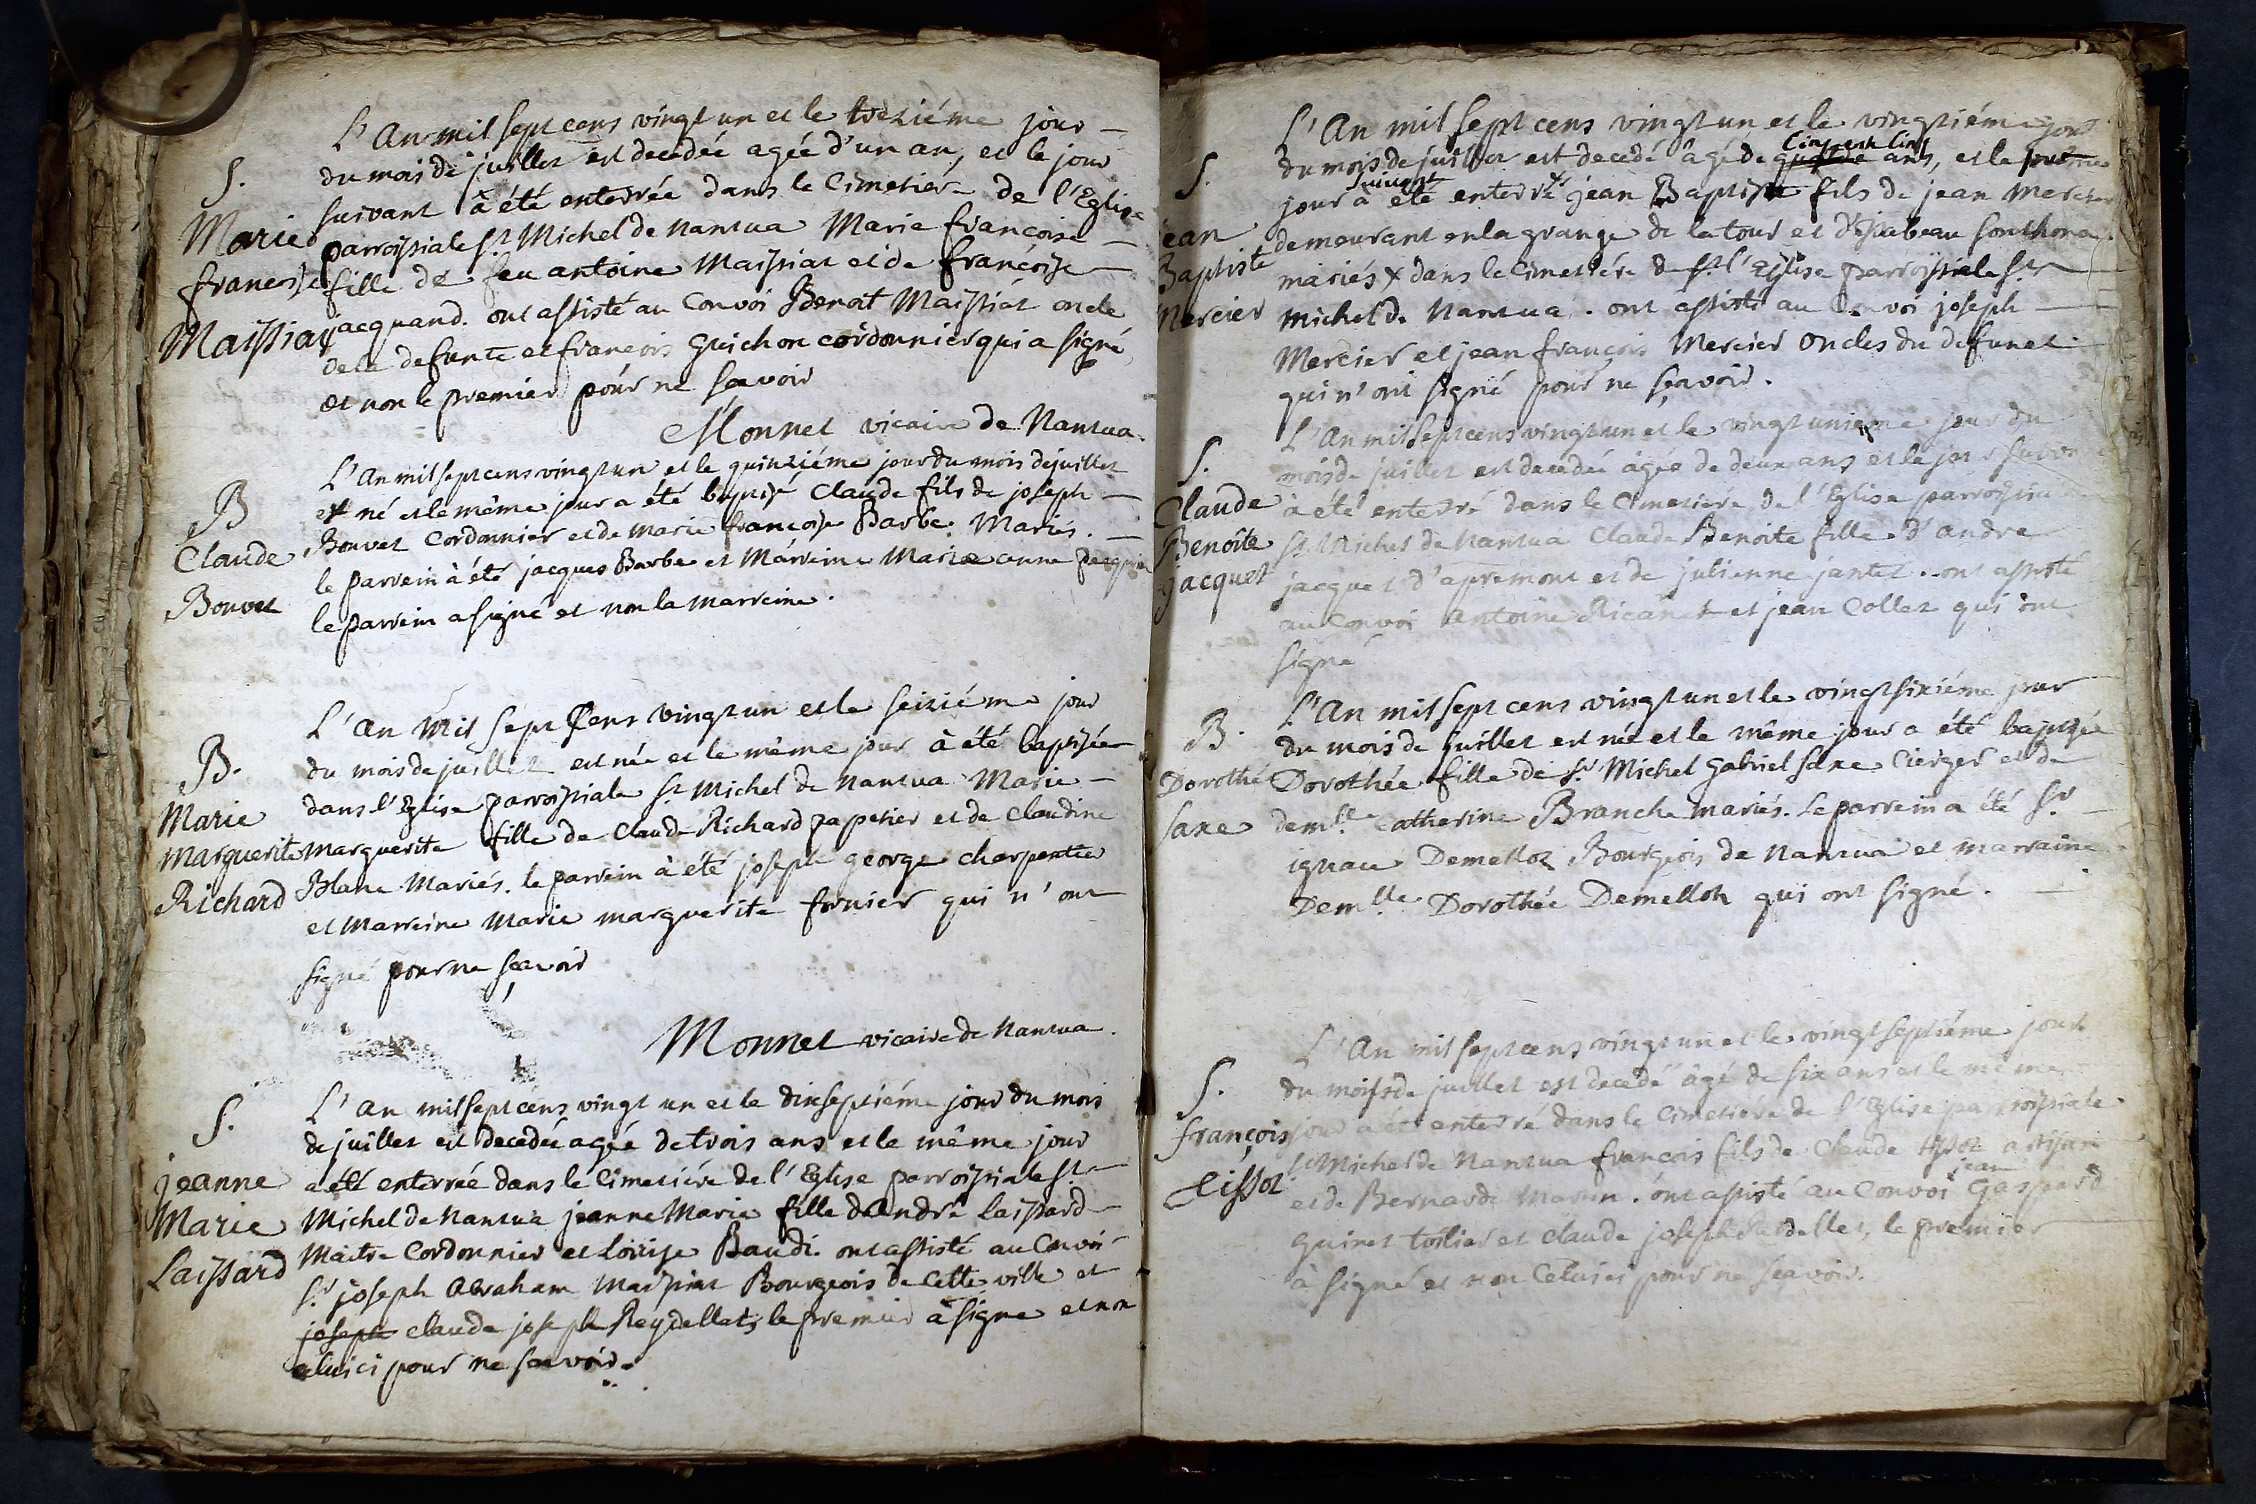 L'An mil sept cens vingt un et le treziéme jour
S.
du mois de juillet est decedée agée d'un an, et le jour
suivant à été enterrée dans le Cimetiére de l'Eglise
Marie
parroissiale St Michel de Nantua Marie francoise
francoise
fille de feu antoine Maissiat et de francoise
Maissiat
jacquand. ont assisté au Convoi Benoit Maissiat oncle
de la defunte et francois Guichon cordonnier qui a signé
et non le premier pour ne sçavoir
Monnet vicaire de Nantua.
L'An mil sept cens vingt un et le quinziéme jour du mois de juillet
B
est né et le même jour a été baptisé Claude fils de joseph
Claude
Bouvet Cordonnier et de marie francoise Barbe. Mariés.
le parrein à été jacques Barbe et Marreine Marie anne
Bouvet
le parrein a signé et non la marreine.
L'An Mil Sept Cens Vingt un et le seiziéme jour
B.
du mois de juillet est née et le même jour à été baptisée
dans l'Eglise parroissiale St Michel de Nantua Marie
Marie
Marguerite
marguerite fille de Claude Richard papetier et de Claudine
Richard
Blanc Mariés. le parrein à été joseph george charpentier
et Marreine Marie marguerite fornier qui n'ont
signé pour ne sçavoir
Monnet vicaire de Nantua.
L'An mil sept cens vingt un et le dixseptiéme jour du mois
S.
de juillet est decedée agée de trois ans et le même jour
jeanne
a été enterrée dans le Cimetiére de l'Eglise parroissiale St
Marie
Michel de Nantua jeanne Marie fille d'André Laissard
Laissard
Maitre Cordonnier et Loüise Baudi. ont assisté au Convoi
Sr joseph Abraham Maissiat Bourgeois de Cette ville et
joseph claude joseph Reydellet, le premier à signe et non
celuici pour ne sçavoir.
L'An mil sept cens vingt un et le vingtiéme jour
S.
Cinquante Cinq
du mois de juillet est decedé âgé de quatre ans, et le
suivant
jour à été enterré x jean Baptiste fils de jean Mercier
jean
demeurant en la grange de la tour et d'isabeau
Baptiste
mariés x dans le Cimetiére de St l'Eglise parroissiale St
Mercier
Michel de Nantua. ont assisté au Convoi joseph
Mercier et jean françois Mercier Oncles du defunct
qui n'ont signé pour ne sçavoir.
L'An mil sept cens vingt un et le vingt uniéme jour du
S.
mois de juillet est decedée âgée de deux ans et le jour suivant
Claude
à été enterré dans le Cimetiére de l'Eglise parroissiale
Benoîte
St Michel de Nantua Claude Benoite fille d'andre
jacquet
jacquet d'apremont et de julienne jantet. ont assisté
au Convoi Antoine et jean Collet qui ont
signé
L'An mil sept cens vingt un et le vingt sixiéme jour
B.
du mois de juillet est née et le même jour a été baptisée
Dorothé
Dorothée fille de Sr Michel Gabriel Saxe Cierger et de
Saxe
demlle Catherine Branche mariés. Le parrein a été Sr
ignace Demelloz Bourgeois de Nantua et marraine
Demlle Dorothée Demelloz qui ont signé.
L'An mil sept cens vingt un et le vingt septiéme jour
S.
du mois de juillet est decedé âgé de six ans et le même
françois
jour a été enterré dans le Cimetiére de l'Eglise parroissiale
St Michel de Nantua francois fils de Claude artisan
Tissot
jean
et de Bernarde. ont assisté au Convoi Gaspard
Guinet toilier et Claude joseph, le premier
à signé et non Celuici pour ne sçavoir.